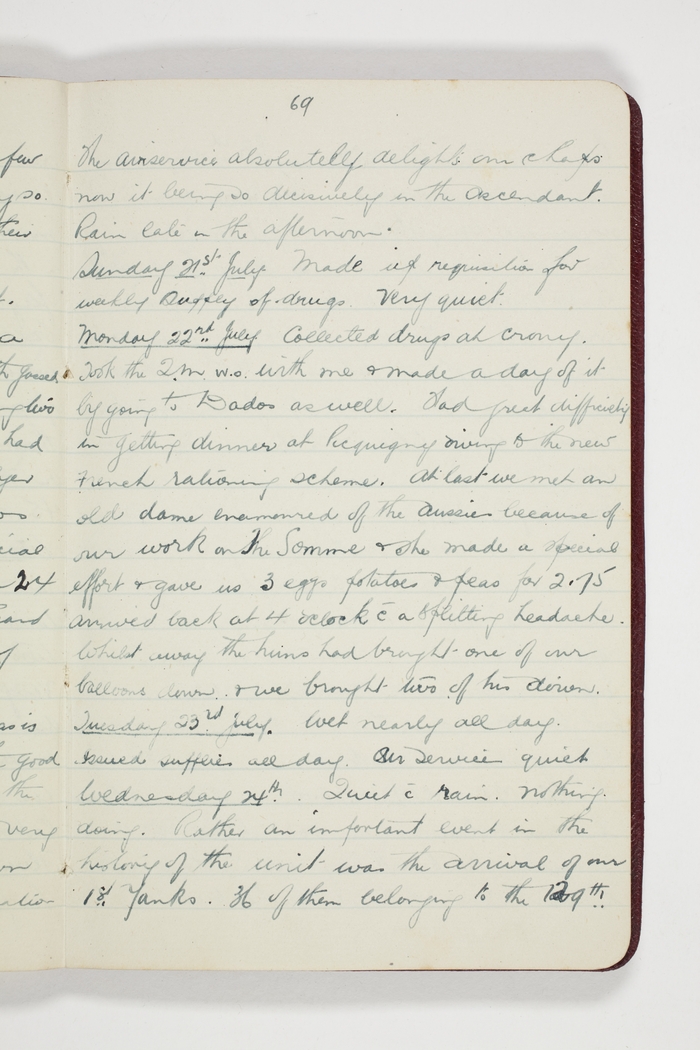 69
few
The airservice absolutely delights our chaps
y so.
now it being so decisively in the ascendant.
their
Rain late in the afternoon.
Sunday 21st July Made up requisition for
weekly supply of drugs. Very quiet.
a
Monday 22nd July Collected drugs at Crouy.
gassed
Took the Q.M. w.o. with me & made a day of it
two
by going to Dados as well. Had great difficulty
had
in getting dinner at Picquigny owing to the new
French rationing scheme. At last we met an
old dame enamoured of the Aussies because of
our work on the Somme & she made a special
24
effort & gave us 3 eggs potatoes & peas for 2.75
arrived back at 4 oclock c̄ a splitting headache.
of
Whilst away the huns had brought one of our
balloons down & we brought two of his down.
is
Tuesday 23rd July. Wet nearly all day.
good
Issued supplies all day. Air Service quiet
the
Wednesday 24th. Quiet c̄ rain. Nothing
very
doing. Rather an important event in the
history of the unit was the arrival of our
1st Yanks. 36 of them belonging to the 129th